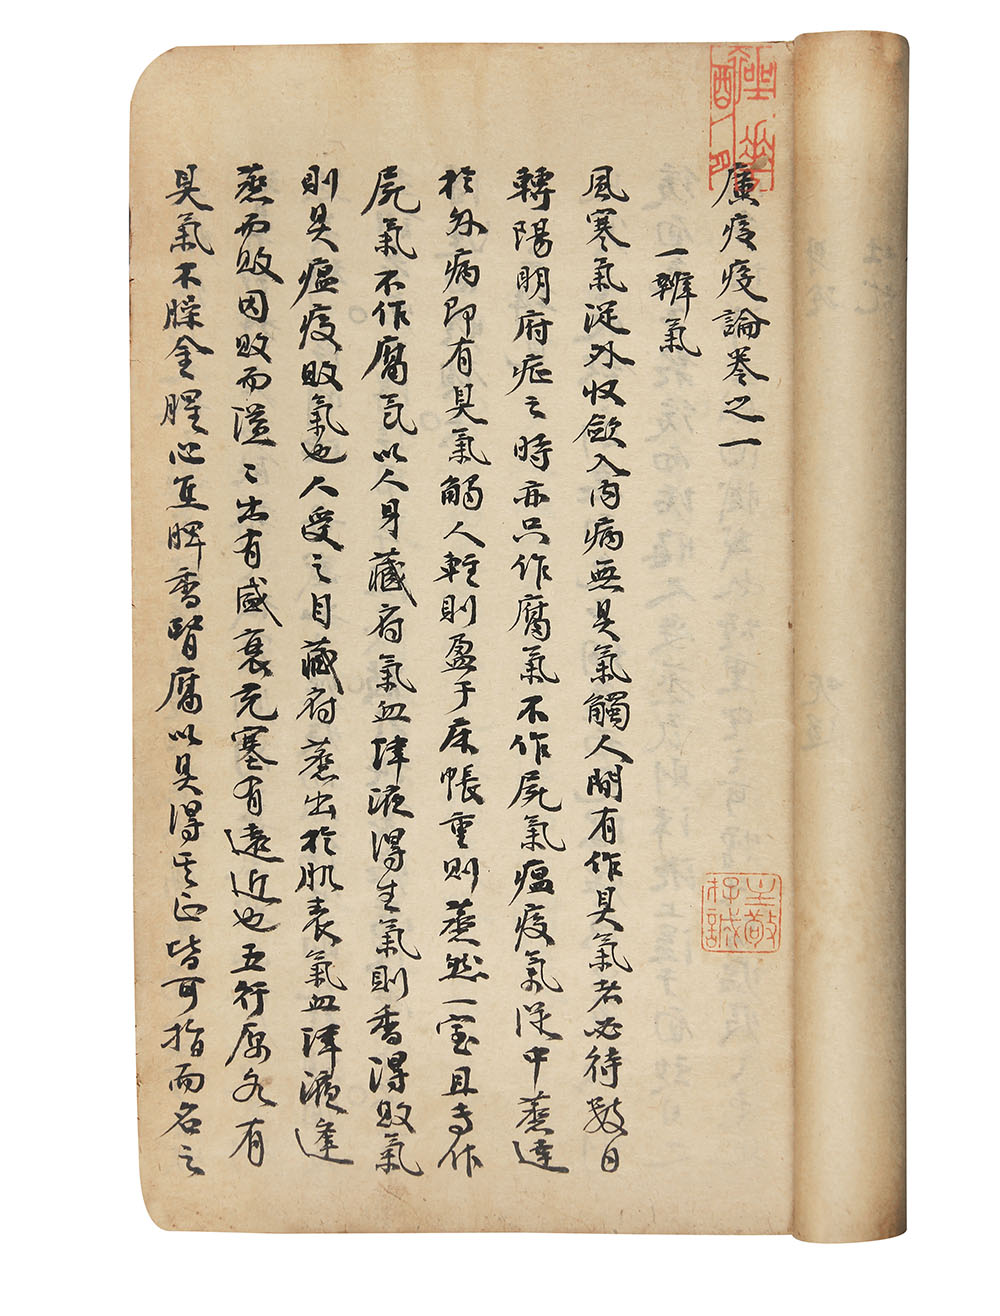 廣瘟疫論卷之一
一辨氣
風寒氣從外收歛入內病無臭氣觸人間有作臭氣者必待數日
轉陽明府症之時亦只作腐氣不作屍氣瘟疫氣從中蒸達
於外病即有臭氣觸人輕則盈于床帳重則蒸然一室且專作
屍氣不作腐氣以人身藏府氣血津液得生氣則香得敗氣
則臭瘟疫敗氣也人受之自藏府蒸出於肌表氣血津液逢
蒸而敗因敗而溢〻出有盛衰充塞有遠近也五行原各有
臭氣木臊金腥心焦脾香腎腐以臭得其正皆可指而名之